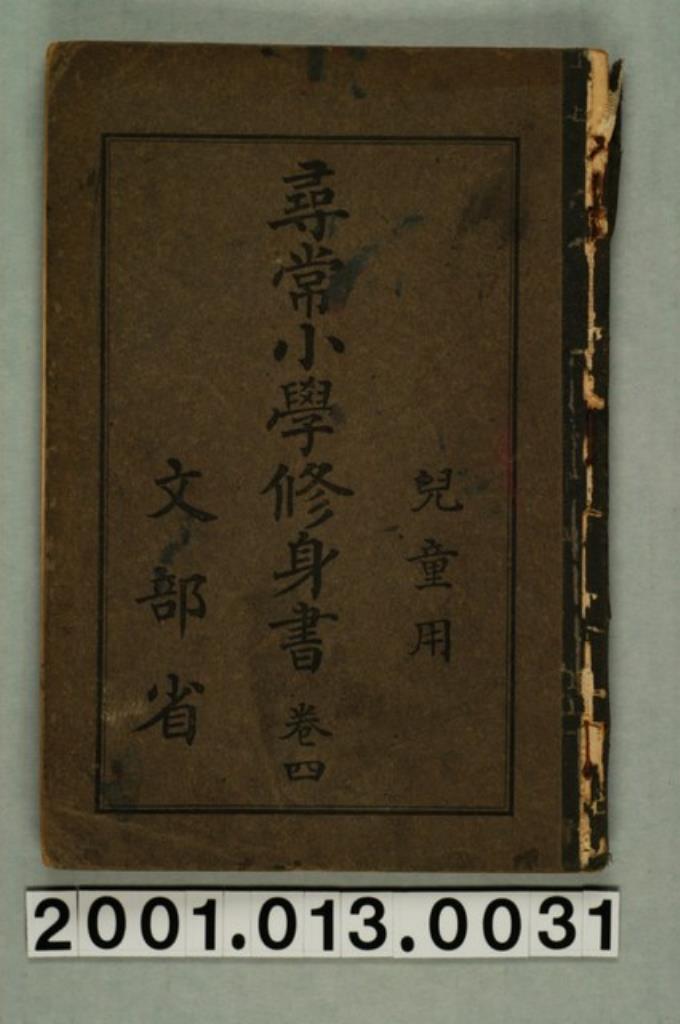 兒童用
尋常小學修身書 卷四
文部省
2001.013.0031